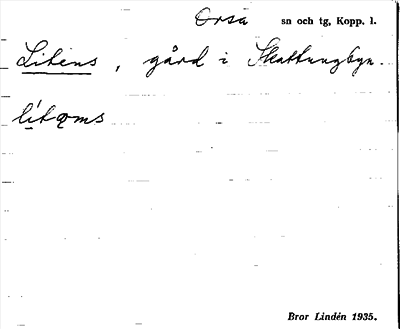 Orsa sn och tg, Kopp. l.
Litens, gård i Skattungbyn.
lítǫms
Bror Lindén 1935.